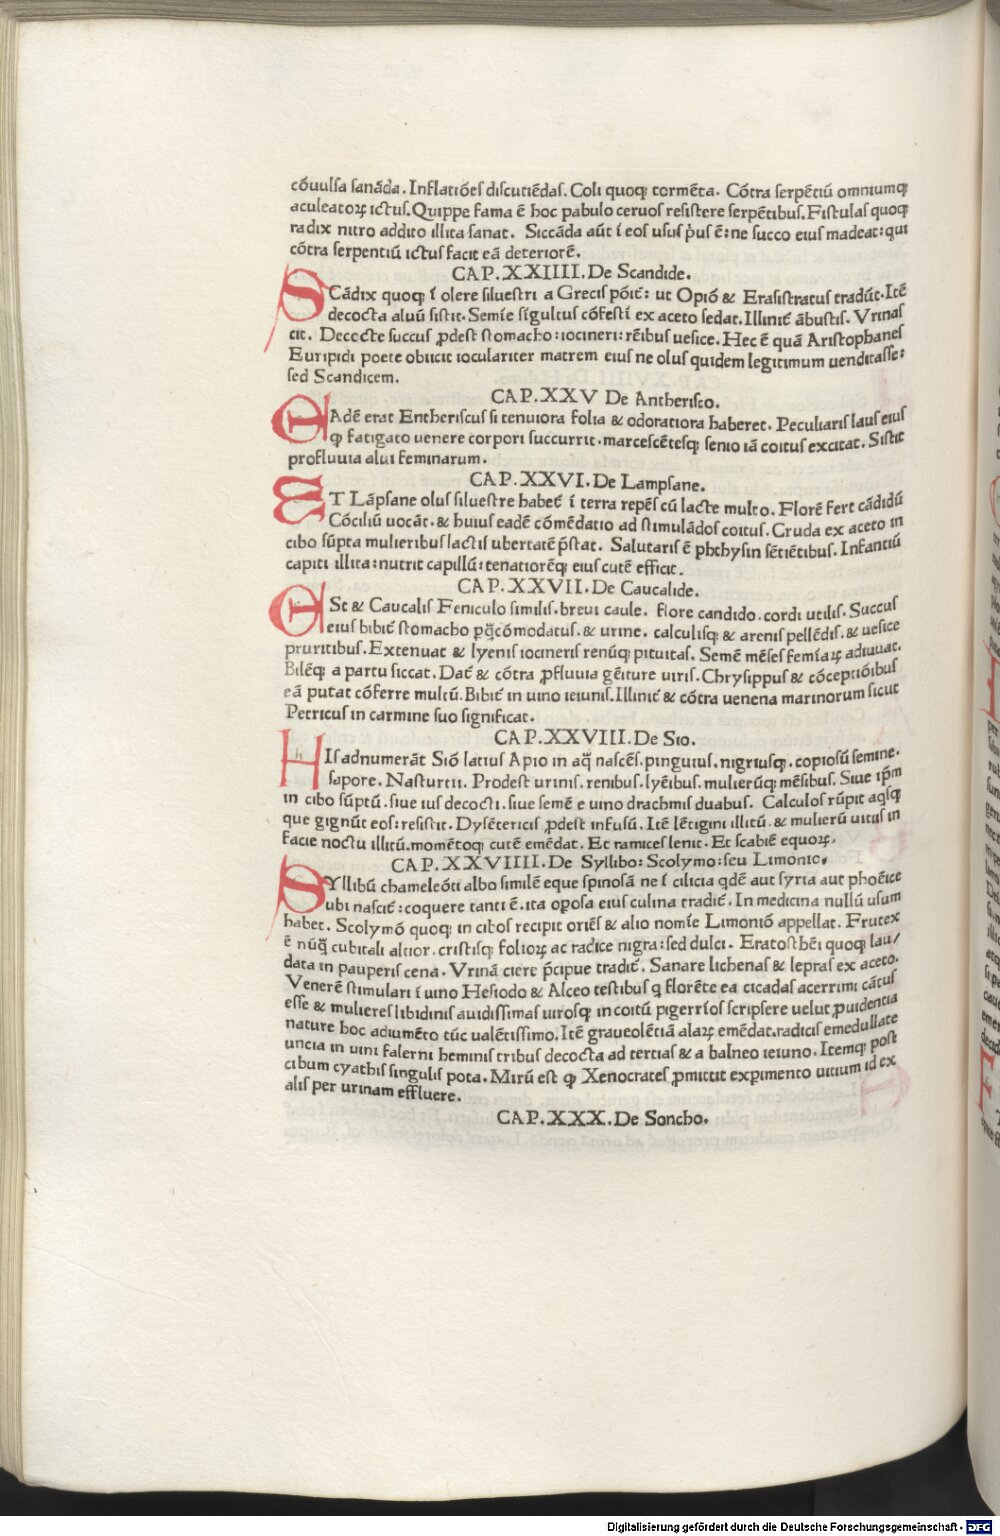 cõuulſa ſanãda. Inflatiões diſcutiẽdas. Coli quoq; tormẽta. Cõtra ſerpẽtiũ omniumq;
aculeatoꝝ ictus. Quippe fama ẽ hoc pabulo ceruos reſiſtere ſerpẽtibus. Fiſtulas quoq;
radix nitro addito illita ſanat. Siccãda aũt ĩ eos uſus p̃us ẽ: ne ſucco eius madeat: qui
cõtra ſerpentiũ ictus facit eã deteriorẽ.
CAP. XXIIII. De Scandide.
SCãdix quoq; ĩ olere ſilueſtri a Grecis põit᷑: ut Opiõ & Eraſiſtratus tradũt. Itẽ
decocta aluũ ſiſtit. Semĩe ſĩgultus cõfeſtĩ ex aceto ſedat. Illinit᷑ ãbuſtis. Vrinas
cit. Decocte ſuccus ꝓdeſt ſtomacho: iocineri: rẽibus ueſice. Hec ẽ quã Ariſtophanes
Euripidi poete obiicit ioculariter matrem eius ne olus quidem legitimum uenditaſſe:
ſed Scandicem.
CAP. XXV De Antheriſco.
EAdẽ erat Entheriſcus ſi tenuiora folia & odoratiora haberet. Peculiaris laus eius
ꝙ fatigato uenere corpori ſuccurrit. marceſcẽteſq; ſenio iã coitus excitat. Siſtit
profluuia alui feminarum.
CAP. XXVI. De Lampſane.
ET Lãpſane olus ſilueſtre habet᷑ ĩ terra repẽs cũ lacte multo. Florẽ fert cãdidũ
Cõciliũ uocãt. & huius eadẽ cõmẽdatio ad ſtimulãdos coitus. Cruda ex aceto in
cibo ſũpta mulieribus lactis ubertatẽ p̃ſtat. Salutaris ẽ phthyſin ſẽtiẽtibus. Infantiũ
capiti illita: nutrit capillũ: tenatiorẽq; eius cutẽ efficit.
CAP. XXVII. De Caucalide.
ESt & Caucalis Feniculo ſimilis. breui caule. flore candido. cordi utilis. Succus
eius bibit᷑ ſtomacho ꝑq̃cõmodatus. & urine. calculiſq; & arenis pellẽdis. & ueſice
pruritibus. Extenuat & lyenis iocineris renũq; pituitas. Semẽ mẽſes femĩaꝝ adiuuat.
Bilẽq; a partu ſiccat. Dat᷑ & cõtra ꝓfluuia gẽiture uiris. Chryſippus & cõceptiõibus
eã putat cõferre multũ. Bibit᷑ in uino ieiunis. Illinit᷑ & cõtra uenena marinorum ſicut
Petricus in carmine ſuo ſignificat.
CAP. XXVIII. De Sio.
HIs adnumerãt Siõ latius Apio in aq̃ naſcẽs. pinguius. nigriuſq;. copioſũ ſemine.
ſapore. Naſturtii. Prodeſt urinis. renibus. lyẽibus. mulierũq; mẽſibus. Siue ip̃m
in cibo ſũptũ. ſiue ius decocti. ſiue ſemẽ e uino drachmis duabus. Calculos rũpit aq̃ſq;
que gignũt eos: reſiſtit. Dyſẽtericis ꝓdeſt infuſũ. Itẽ lẽtigini illitũ. & mulierũ uitiis in
facie noctu illitũ. momẽtoq; cutẽ emẽdat. Et ramices lenit. Et ſcabiẽ equoꝝ.
CAP. XXVIIII. De Syllibo: Scolymo: ſeu Limonio.
SYllibũ chameleõti albo ſimilẽ eque ſpinoſã ne ĩ cilicia qdẽ aut ſyria aut phoẽice
ubi naſcit᷑: coquere tanti ẽ. ita opoſa eius culina tradit᷑. In medicina nullũ uſum
habet. Scolymõ quoq; in cibos recipit oriẽs & alio nomĩe Limoniõ appellat. Frutex
ẽ nũq̃ cubitali altior. criſtiſq; folioꝝ ac radice nigra: ſed dulci. Eratoſthẽi quoq; lau/
data in pauperis cena. Vrinã ciere p̃cipue tradit᷑. Sanare lichenas & lepras ex aceto.
Venerẽ ſtimulari ĩ uino Heſiodo & Alceo teſtibus q florẽte ea cicadas acerrimi cãtus
eſſe & mulieres libidinis auidiſſimas uiroſq; in coitũ pigerrĩos ſcripſere uelut ꝓuidentia
nature hoc adiumẽto tũc ualẽtiſſimo. Itẽ graueolẽtiã alaꝝ emẽdat. radicis emedullate
uncia in uini falerni heminis tribus decocta ad tertias & a balneo ieiuno. Itemq; poſt
cibum cyathis ſingulis pota. Mirũ eſt ꝙ Xenocrates ꝓmittit exꝑimento uitium id ex
alis per urinam effluere.
CAP. XXX. De Soncho.
Digitalisierung gefördert durch die Deutsche Forschungsgemeinschaft - DFG